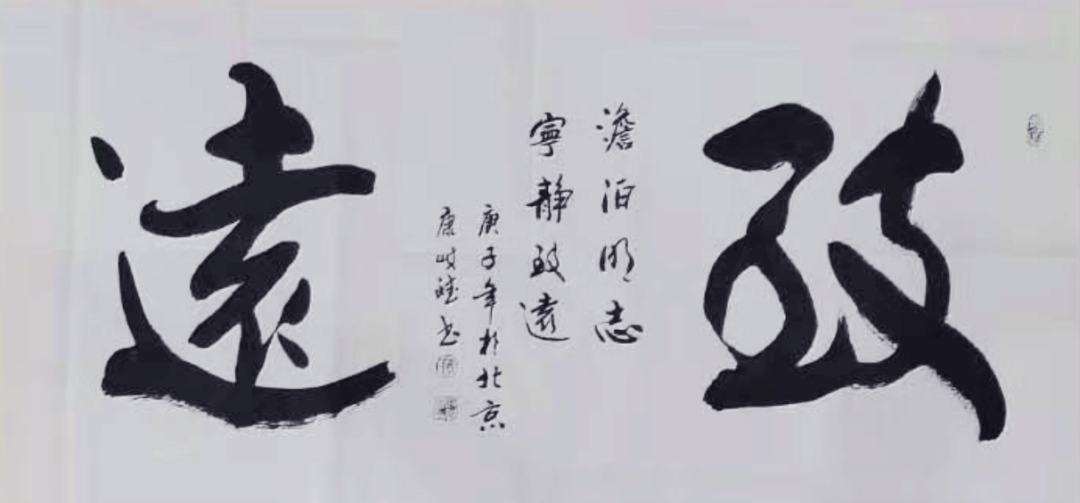 致
澹泊明志
寧静致遠
庚子年於北京
康岐
書
遠